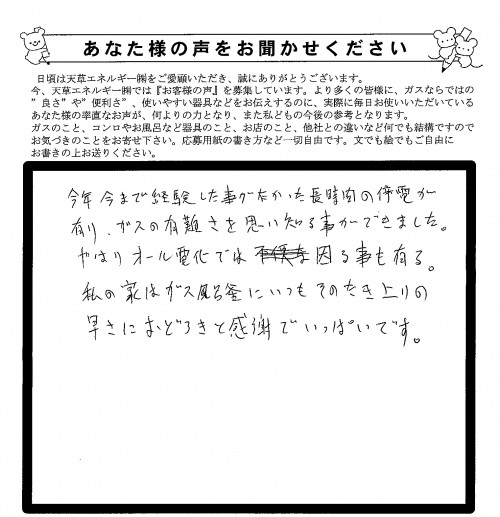 あなた様の声をお聞かせください
日頃は天草エネルギー㈱をご愛顧いただき、誠にありがとうございます。
今、天草エネルギー㈱では『お客様の声』を募集しています。より多くの皆様に、ガスならではの
”良さ”や”便利さ”、使いやすい器具などをお伝えするのに、実際に毎日お使いいただいている
あなた様の率直なお声が、何よりの力となり、また私どもの今後の参考となります。
ガスのこと、コンロやお風呂など器具のこと、お店のこと、他社との違いなど何でも結構ですので
お気づきのことをお寄せ下さい。応募用紙の書き方など一切自由です。文でも絵でもご自由に
お書きの上お送りください。
今年今まで経験した事がなかった長時間の停電が
有り、ガスの有難さを思い知る事ができました。
やはりオール電化では 因る事も有る。
私の家はガス風呂釜にいつもそのたき上りの
早さにおどろきと感謝でいっぱいです。